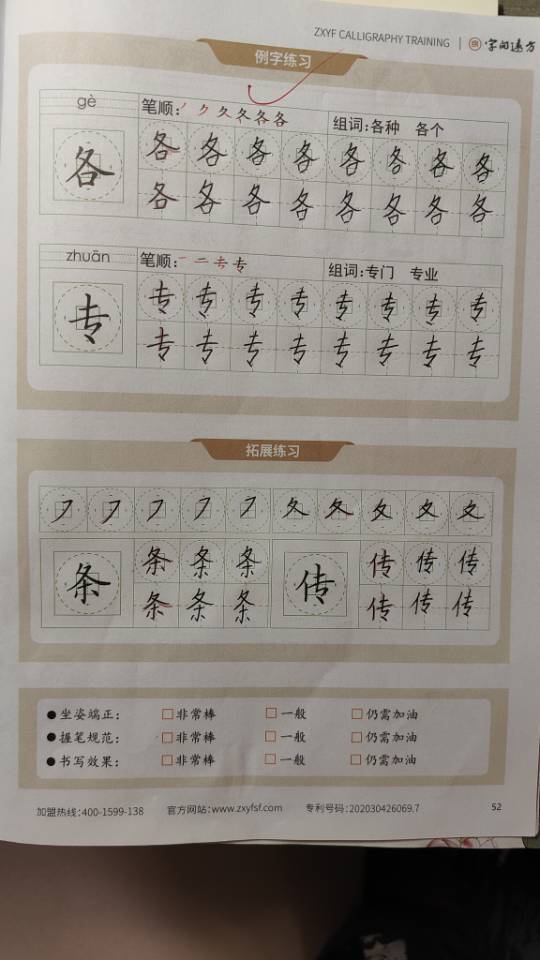 ZXYF CALLIGRAPHY TRAINING | 字的远方
例字练习
gè 笔顺: 组词:各种 各个
各 各 各 各 各 各 各 各 各
各 各 各 各 各 各 各 各
zhuān 笔顺: 组词:专门 专业
专 专 专 专 专 专 专 专 专
专 专 专 专 专 专 专 专
拓展练习
夂 夂 夂 夂 夂
条 条 条 条 传 传 传 传
条 条 条 传 传 传
●坐姿端正: □非常棒 □一般 □仍需加油
●握笔规范: □非常棒 □一般 □仍需加油
●书写效果: □非常棒 □一般 □仍需加油
加盟热线:400-1599-138 官方网站:www.zxyfsf.com 专利号码:202030426069.7 52